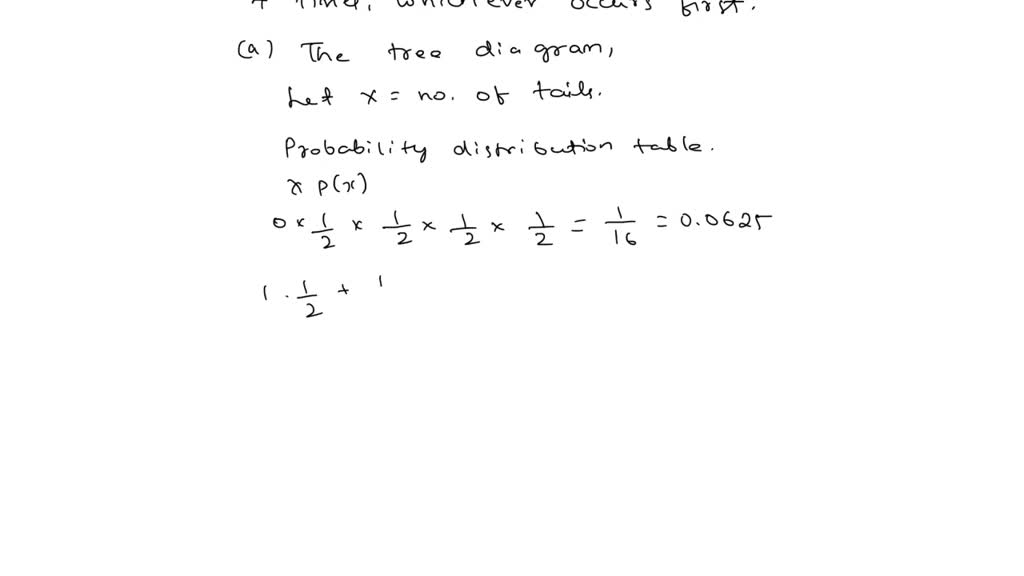 time, whichever occurs first.
(a) The tree diagram,
Let x = no. of tails.
Probability distribution table.
x p(x)
0 × 1/2 × 1/2 × 1/2 × 1/2 = 1/16 = 0.0625
1 . 1/2 + 1